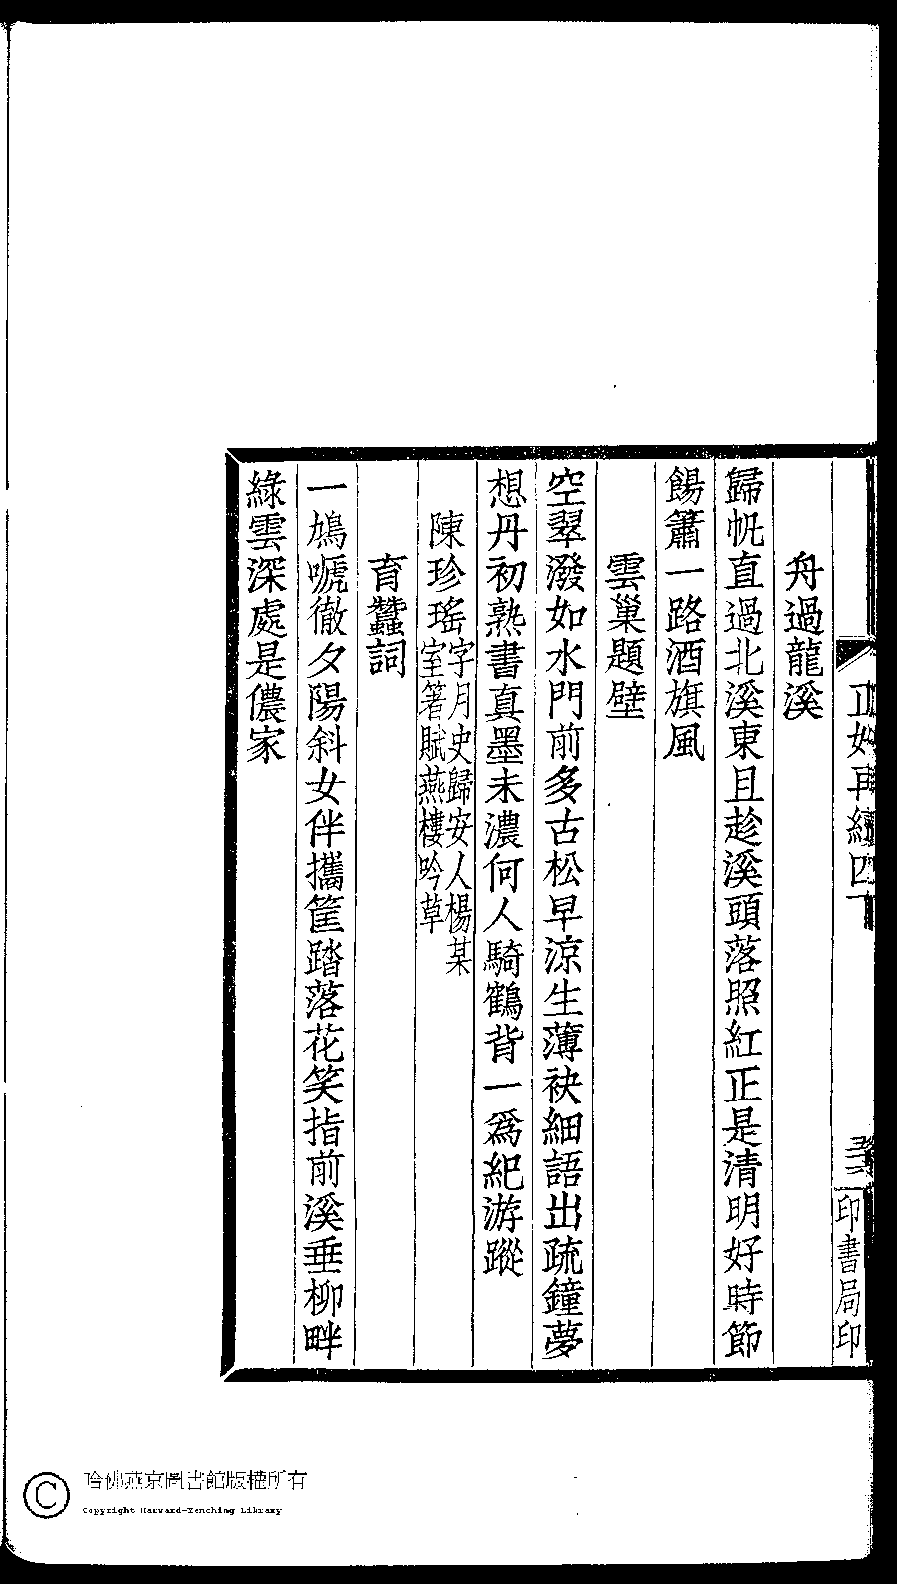 正始再續四下
印書局印
舟過龍溪
歸帆直過北溪東且趁溪頭落照紅正是清明好時節
餳簫一路酒旗風
雲巢題壁
空翠潑如水門前多古松早涼生薄袂細語出疏鐘夢
想丹初熟書真墨未濃何人騎鶴背一爲紀游蹤
陳珍瑤字月史歸安人楊某
室著賦燕樓吟草
育蠶詞
一鳩嗁徹夕陽斜女伴攜筐踏落花笑指前溪垂柳畔
綠雲深處是儂家
哈佛燕京圖書館版權所有
Copyright Harvard-Yenching Library